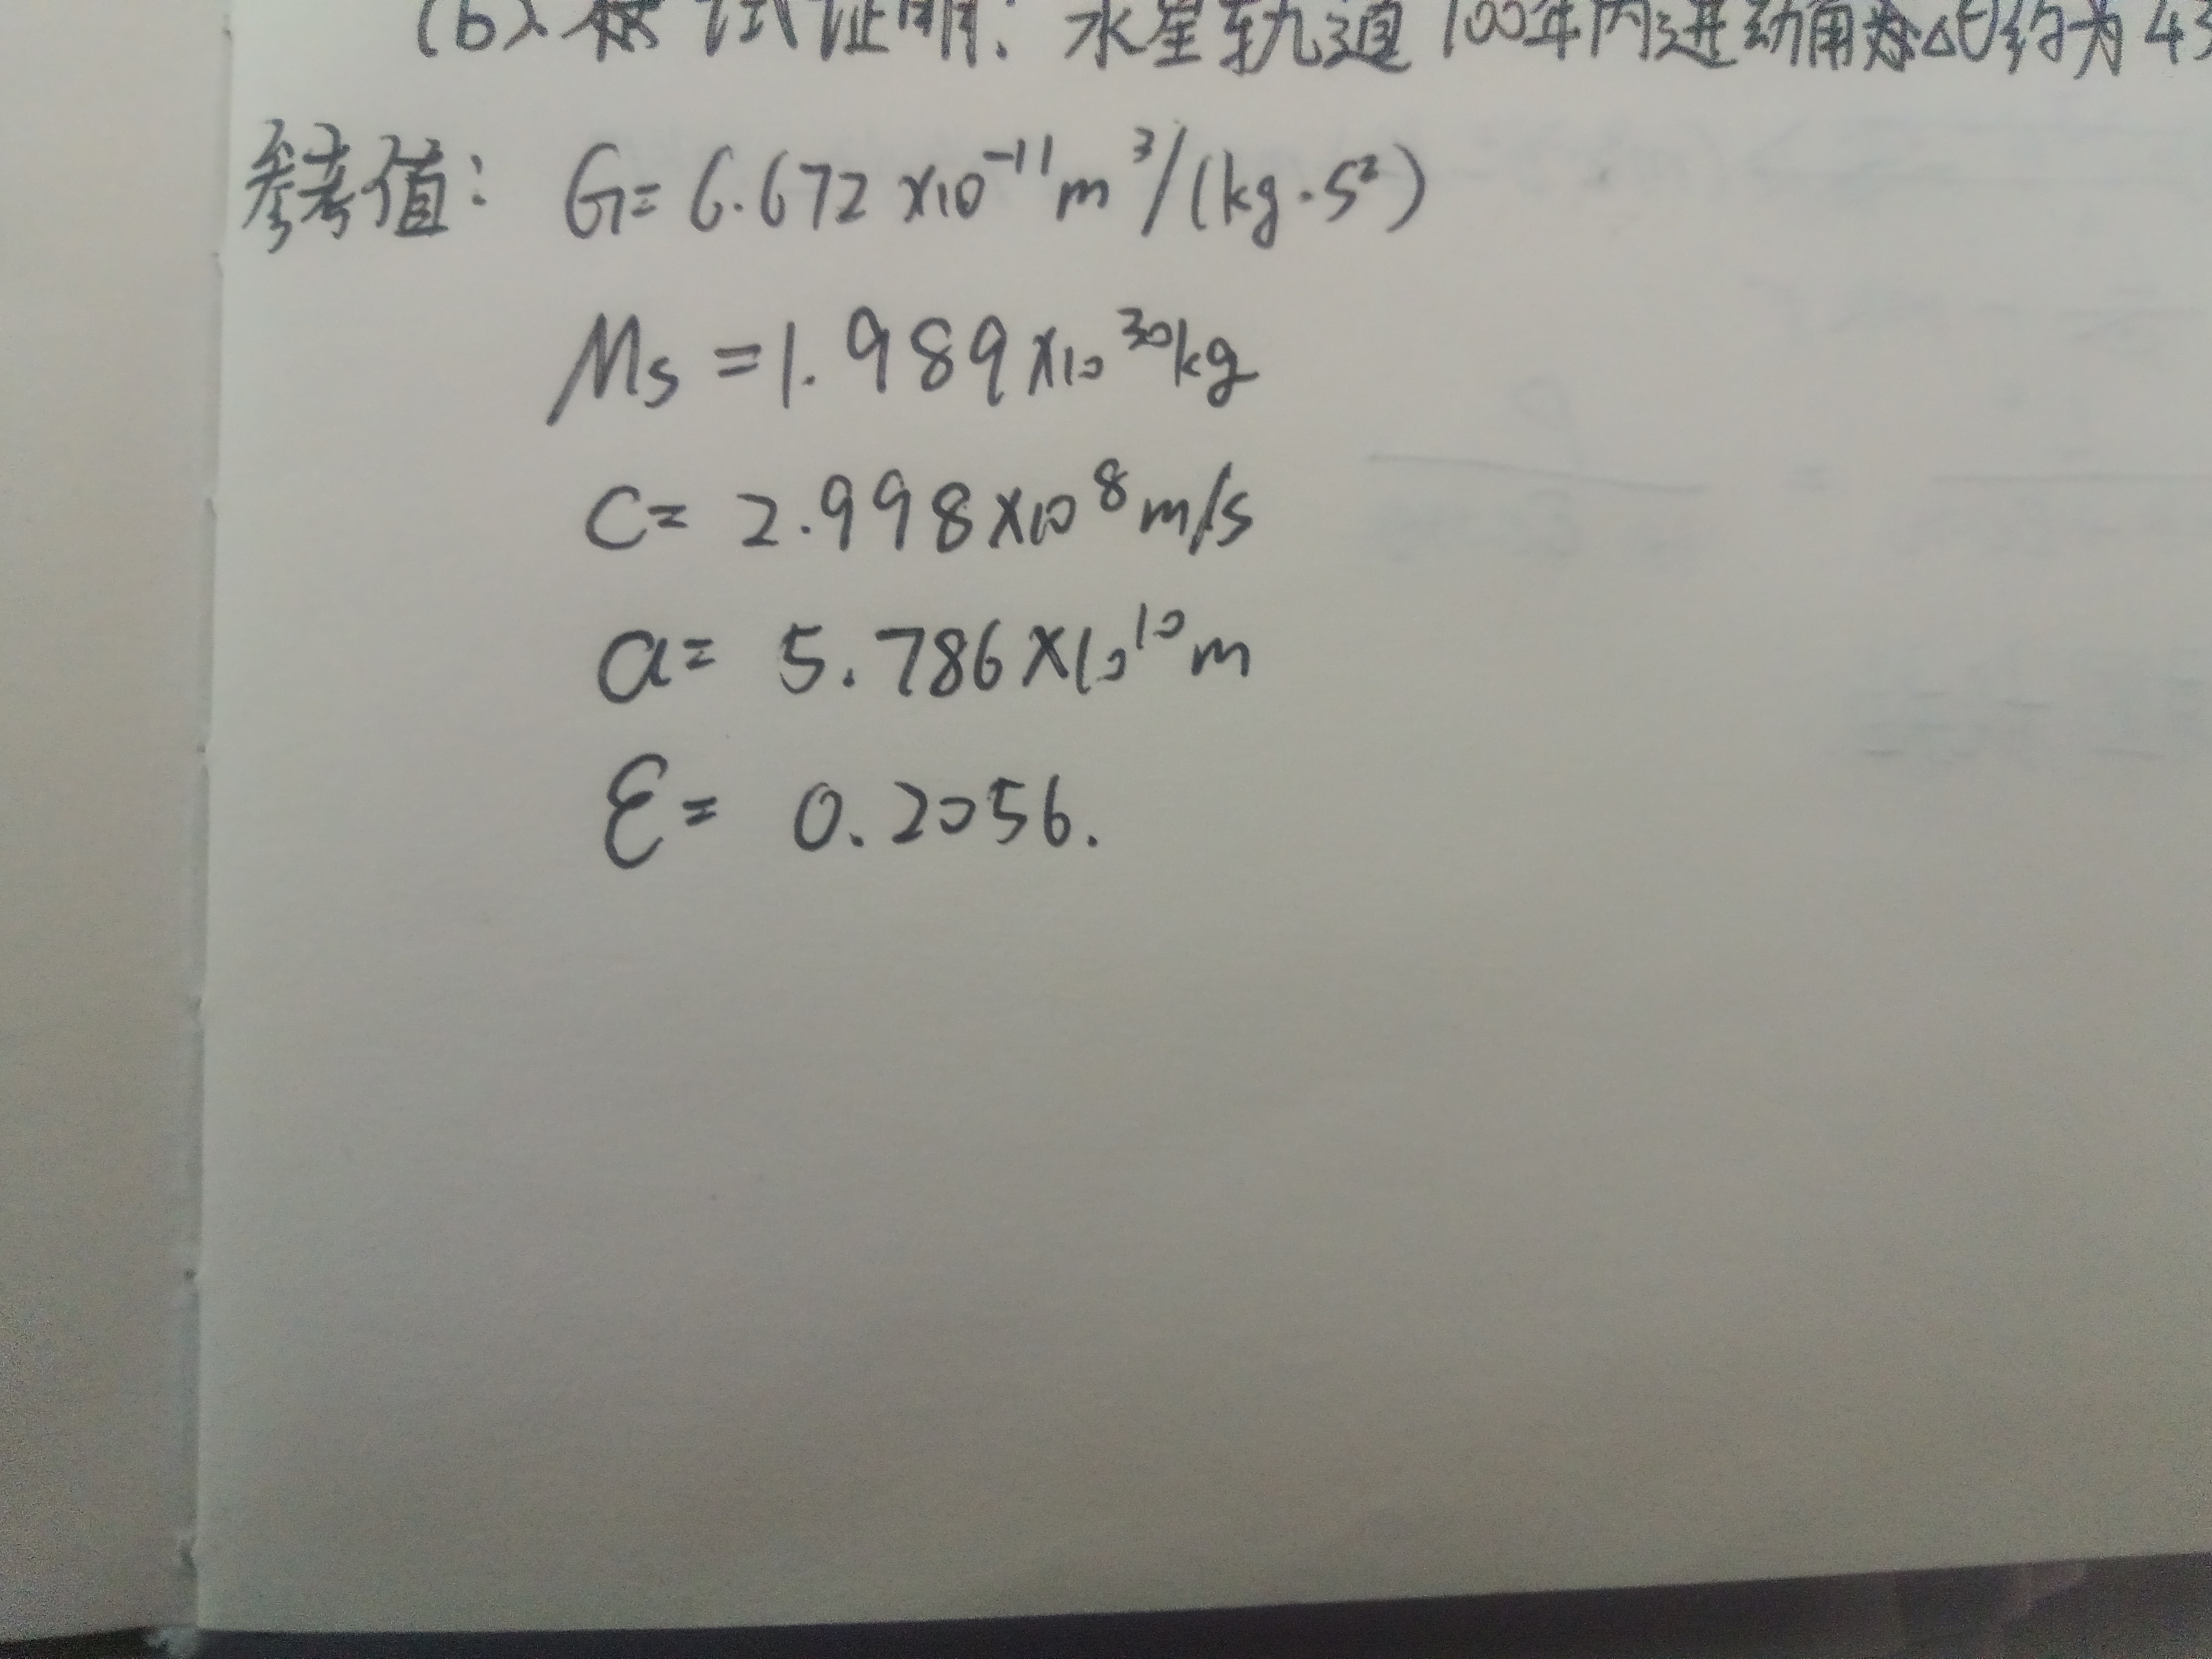 (b) 试证明: 水星轨道100年内进动角Δθ约为43
参考值: G= 6.672×10⁻¹¹m³/(kg·s²)
Ms =1.989×10³⁰kg
C= 2.998×10⁸m/s
a= 5.786×10¹⁰m
ε= 0.2056.